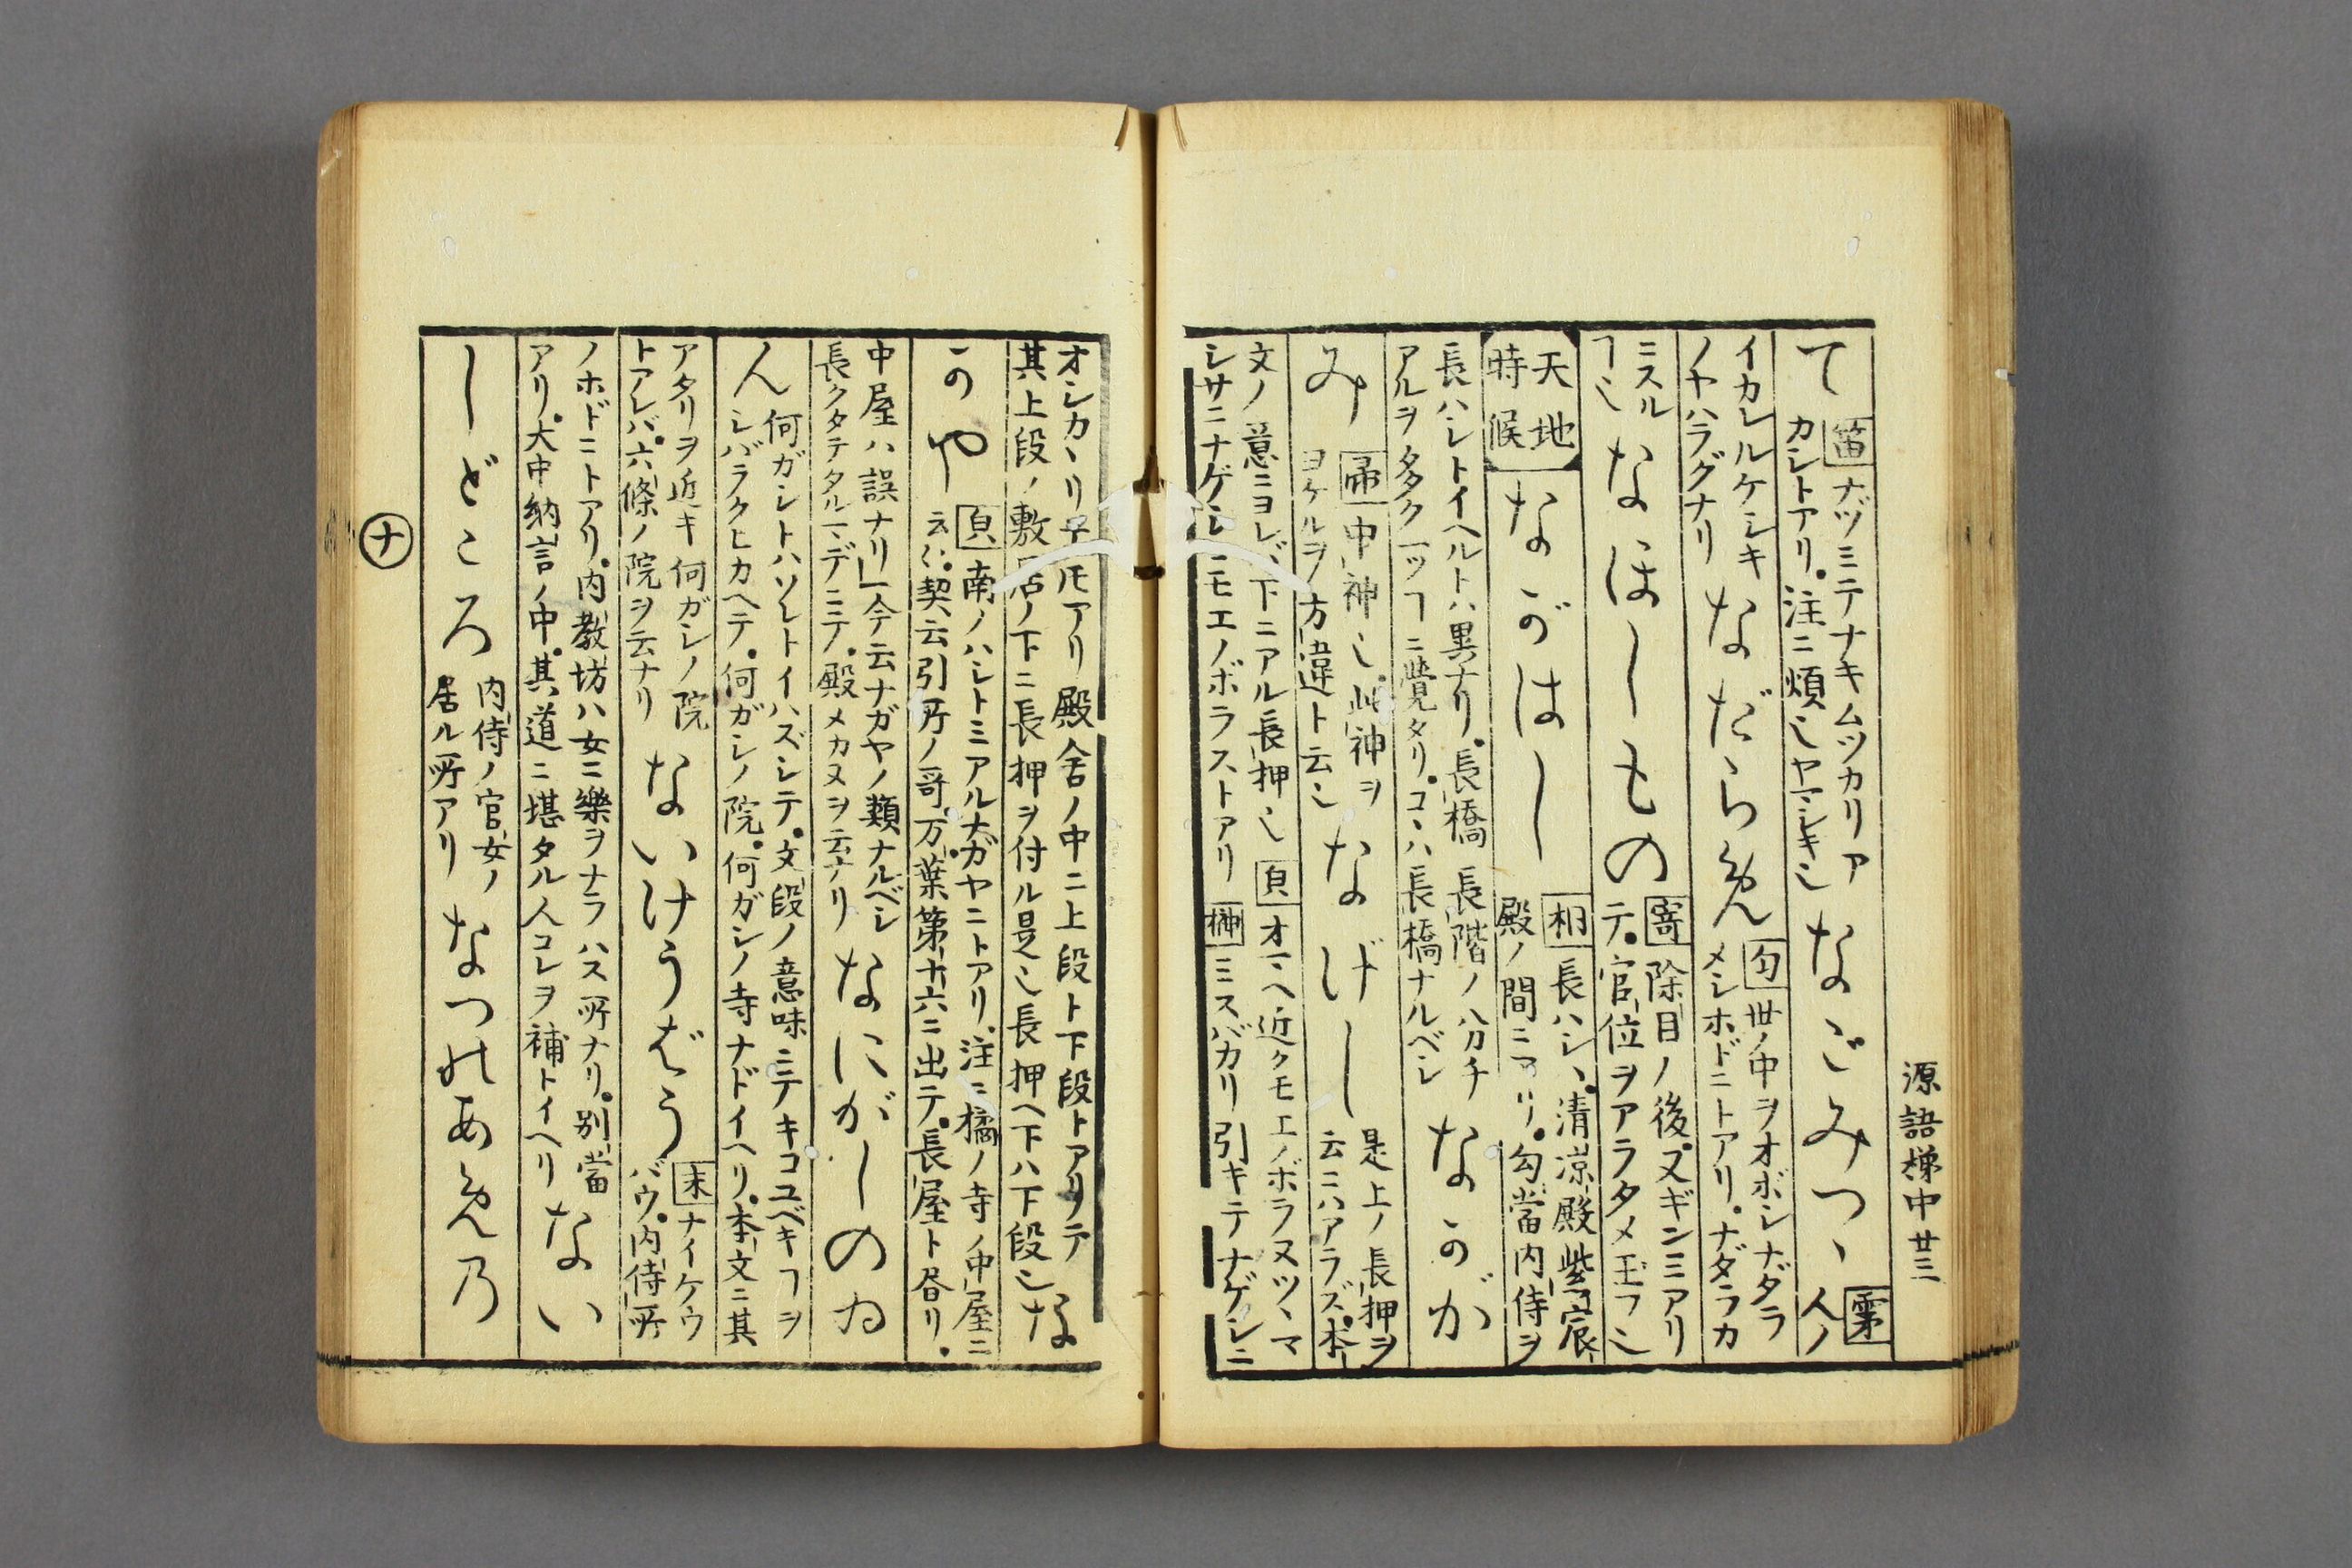 源語梯中廿三
て 笛 ナヅミテナキムツカリア
カシトアリ。注ニ煩シヤマシキ也 なごみつゝ 霂 人ノ
イカレルケシキ
ノヤハラグナリ なだらめん 匂 世ノ中ヲオボシナダラ
メシホドニトアリ。ナダラカ
ニスル
ヿ也 なほしもの 寄 除目ノ後。又ギンミアリ
テ。官位ヲアラタメ玉フ也
天地
時候 ながはし 相 長ハシハ。清凉殿紫宸
殿ノ間ニアリ。勾當内侍ヲ
長ハシトイヘルトハ異ナリ。長橋長階ノ分チ
アルヲ多ク一ツヿニ覺タリ。コヽハ長橋ナルベシ なかが
み 帚 中神也。此神ヲ
ヨケルヲ方違ト云也 なげし 是上ノ長押ヲ
云ニハアラズ。本
文ノ意ニヨレバ下ニアル長押也 貞 オマヘ近クモエノボラヌツヽマ
シサニナゲシニモエノボラストアリ 榊 ミスバカリ引キテナゲシニ
オシカヽリ玉フ𪜈アリ殿舍ノ中ニ上段ト下段トアリテ
其上段ノ敷居ノ下ニ長押ヲ付ル是也長押ヘ下ハ下段也 な
かや 貞 南ノハシトミアルナガヤニトアリ。注ニ橘ノ寺ノ中屋ニ
云々。契云引所ノ哥。万葉第十六ニ出テ。長屋ト有リ。
中屋ハ誤ナリ」今云ナガヤノ類ナルベシ
長クタテタルマデニテ。殿メカヌヲ云ナリ なにがしのゐ
ん 何ガシトハソレトイハズシテ。文段ノ意味ニテキコユベキヿヲ
シバラクヒカヘテ。何ガシノ院。何ガシノ寺ナドイヘリ。本文ニ其
アタリヲ近キ何ガシノ院
トアレバ。六條ノ院ヲ云ナリ ないけうばう 末 ナイケウ
バウ。内侍所
ノホドニトアリ。内教坊ハ女ニ樂ヲナラハス所ナリ。別當
アリ。大中納言ノ中。其道ニ堪タル人コレヲ補トイヘリ ない
しどころ 内侍ノ官女ノ
居ル所アリ なつのあめの
ナ